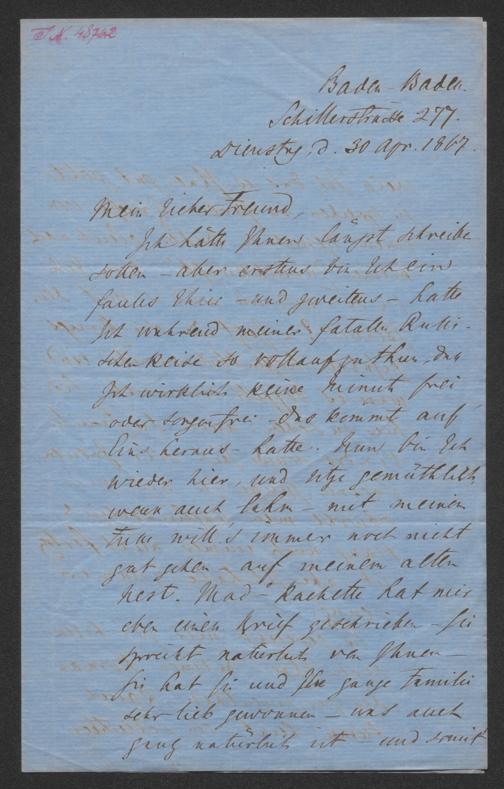 J.N. 48722
Baden-Baden.
Schillerstrasse 277.
Dienstag, d. 30 Apr. 1867.
Mein lieber Freund,
Ich hätte Ihnen längst schreiben
sollen – aber erstens bin Ich ein
faules Thier – und zweitens – hatte
Ich während meiner fatalen Russi-
schen Reise so vollauf zu thun, dass
Ich wirklich keine minut frei
oder sorgenfrei – das kommt auf
Eins heraus – hatte. Nun bin Ich
wieder hier, und sitze gemüthlich
wenn auch lahm – mit meinem
Fusse will's immer noch nicht
gut gehen – auf meinem alten
Nest. Mad- Rachette hat mir
eben einen Brief geschrieben – Sie
spricht natürlich von Ihnen –
Sie hat Sie und Ihre ganze Familie
sehr lieb gewonnen – was auch
ganz natürlich ist und somit